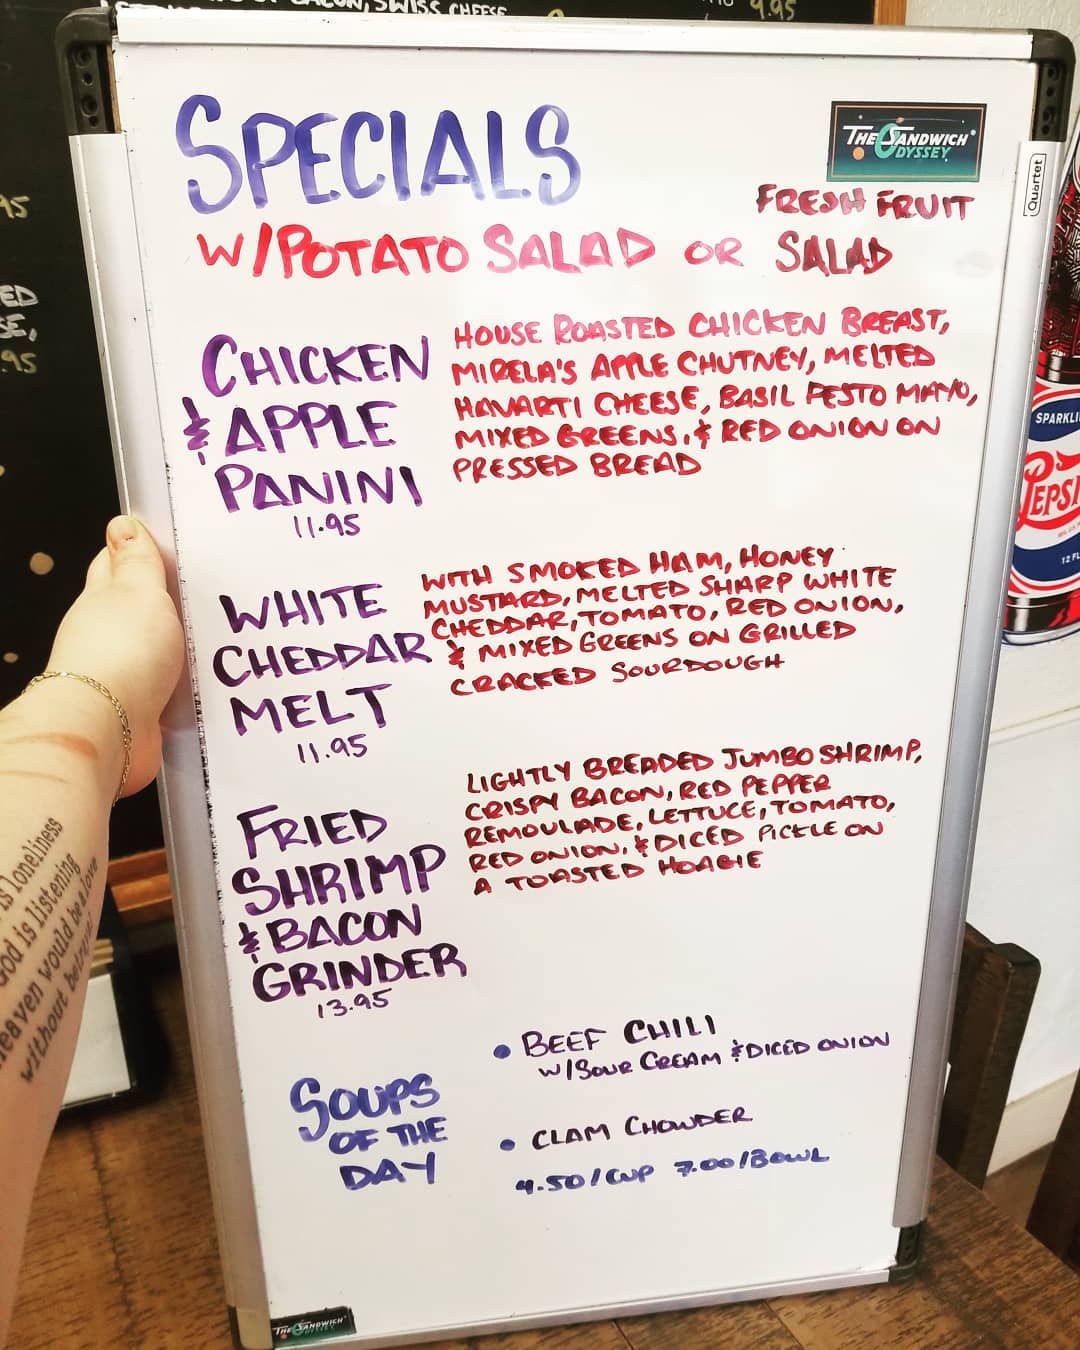 BACON, SWISS CHEESE
9.95
95
ED
SE,
.95
THE SANDWICH
ODYSSEY
SPECIALS
FRESH FRUIT
W/POTATO SALAD OR SALAD
CHICKEN
& APPLE
PANINI
11.95
HOUSE ROASTED CHICKEN BREAST,
MIRELA'S APPLE CHUTNEY, MELTED
HAVARTI CHEESE, BASIL PESTO MAYO,
MIXED GREENS, & RED ONION ON
PRESSED BREAD
WHITE
CHEDDAR
MELT
11.95
WITH SMOKED HAM, HONEY
MUSTARD, MELTED SHARP WHITE
CHEDDAR, TOMATO, RED ONION,
& MIXED GREENS ON GRILLED
CRACKED SOURDOUGH
FRIED
SHRIMP
& BACON
GRINDER
13.95
LIGHTLY BREADED JUMBO SHRIMP,
CRISPY BACON, RED PEPPER
REMOULADE, LETTUCE, TOMATO,
RED ONION, & DICED PICKLE ON
A TOASTED HOAGIE
SOUPS
OF THE
DAY
• BEEF CHILI
W/SOUR CREAM & DICED ONION
• CLAM CHOWDER
4.50/CUP 7.00/BOWL
THE SANDWICH
ODYSSEY
Quartet
SPARKLI
PEPSI
12 FL
is loneliness
God is listening
heaven would be a love
without betrayal